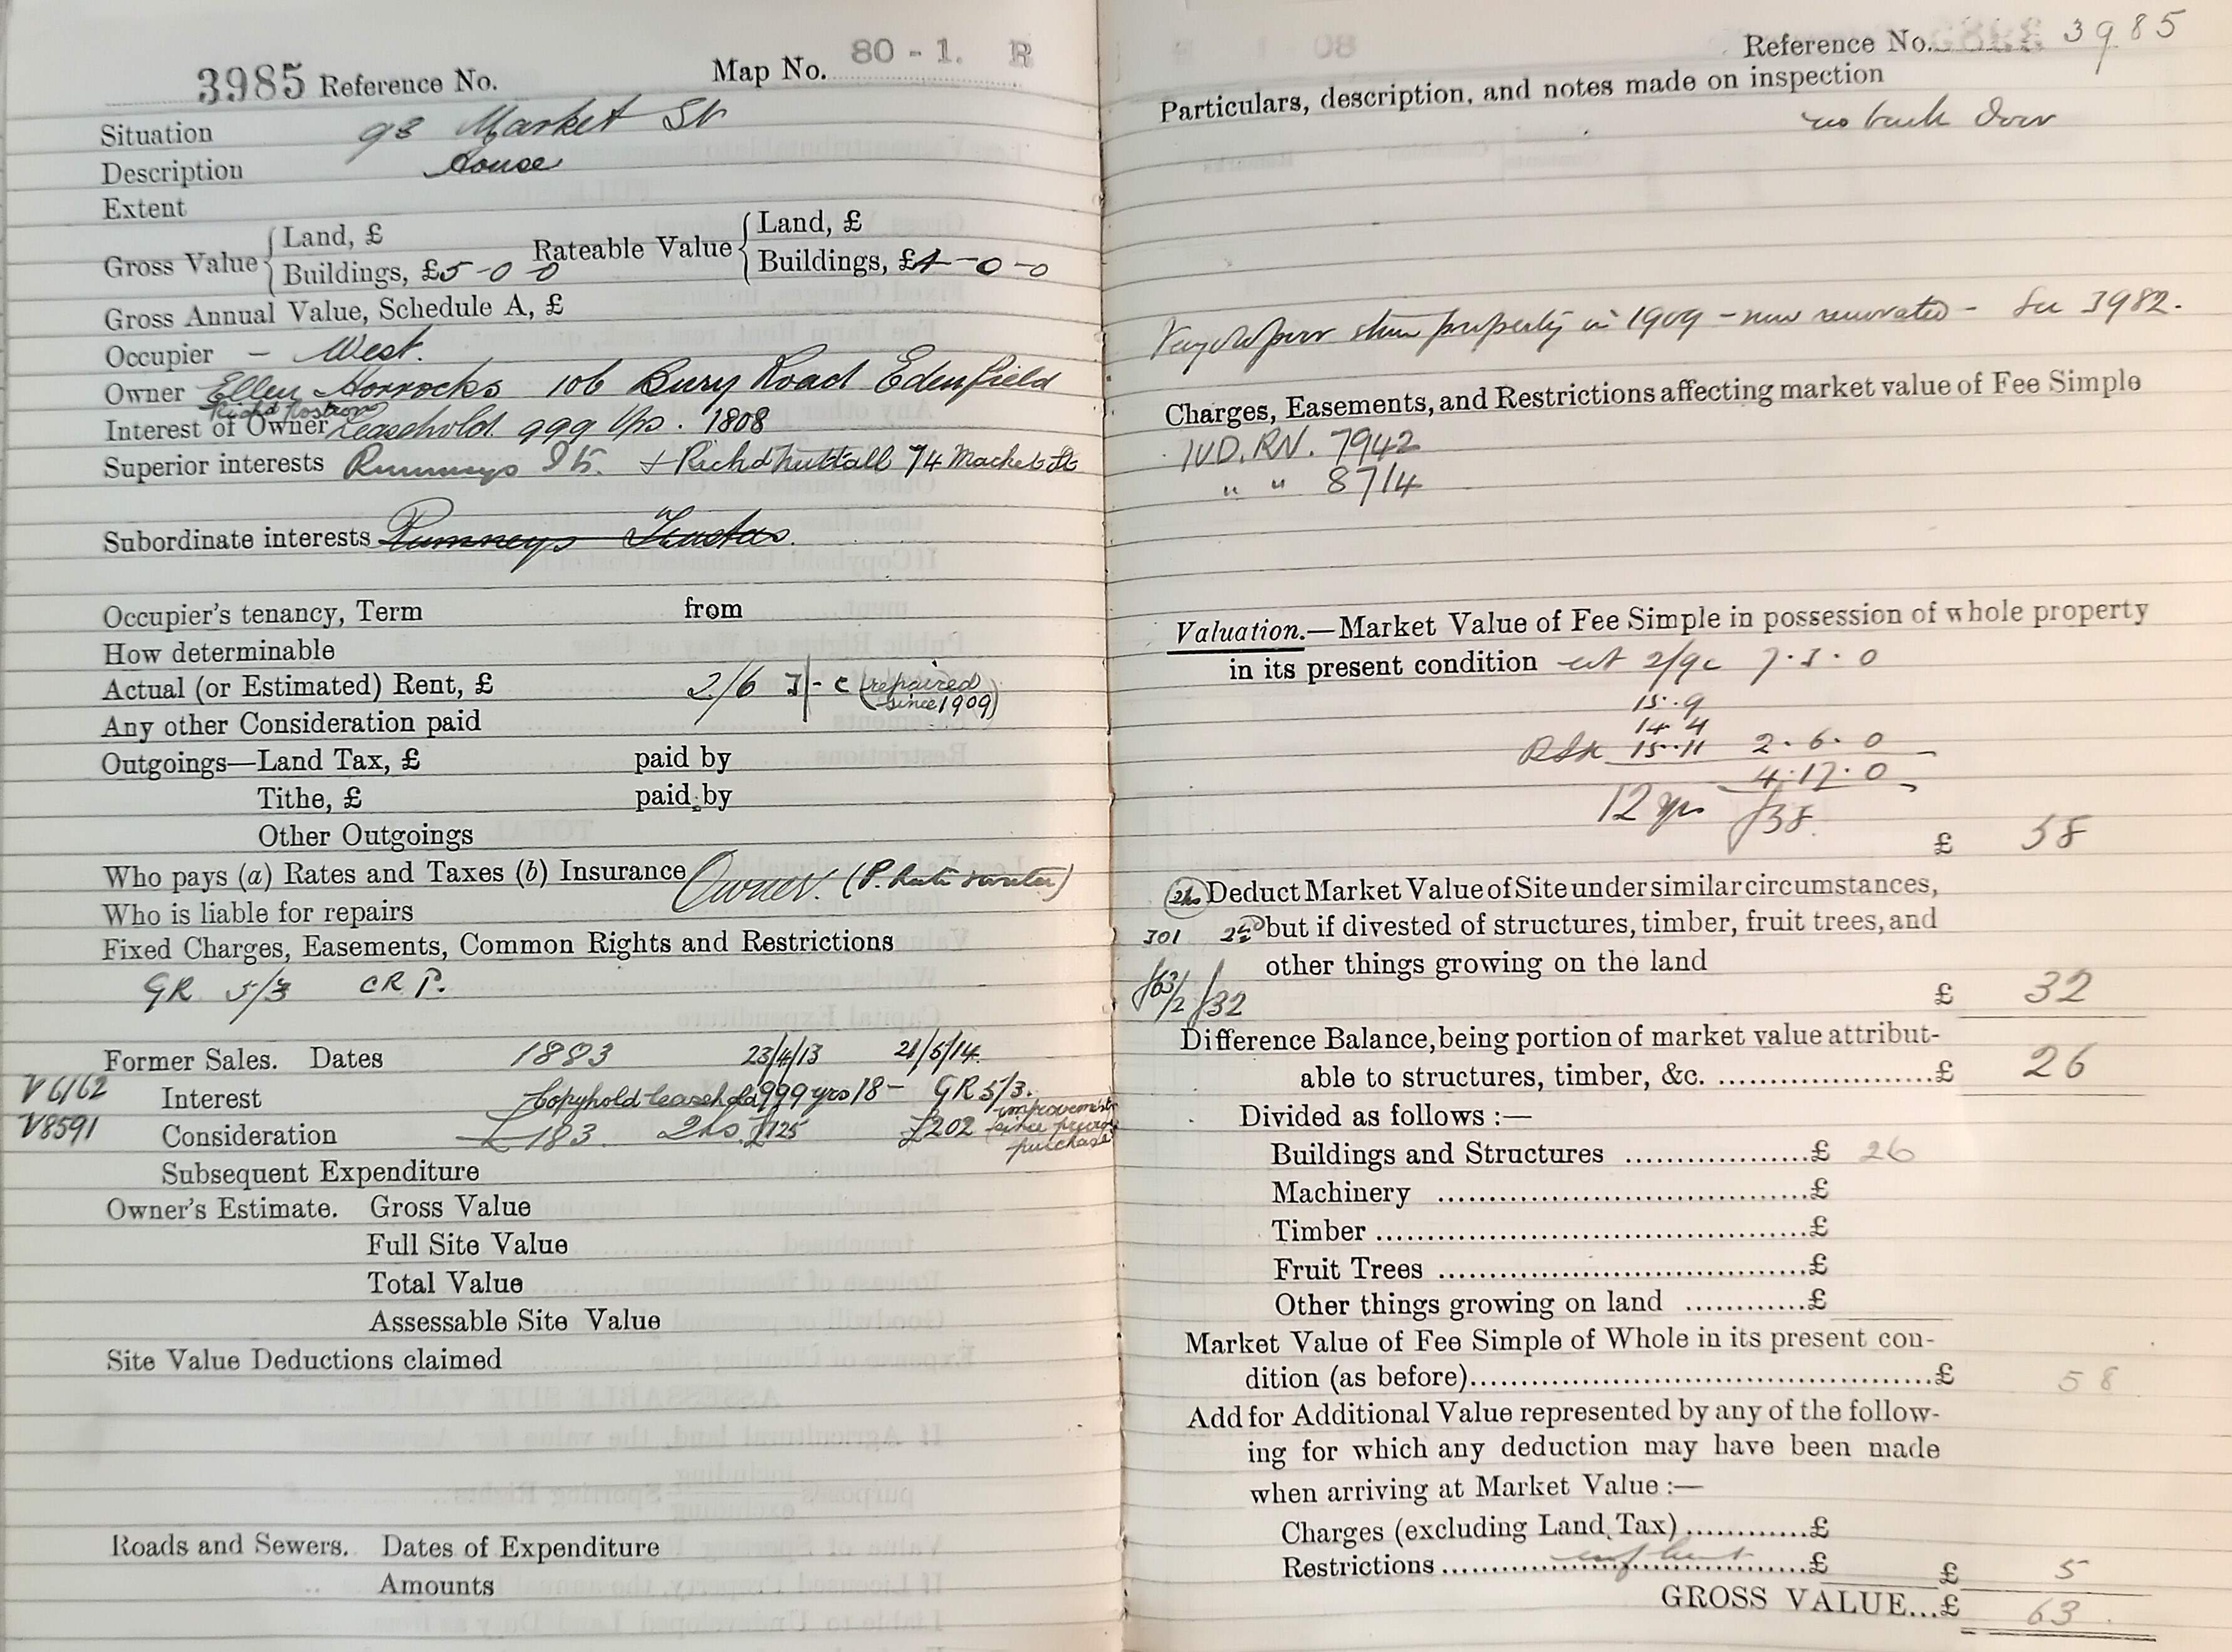 3985 Reference No. Map No. 80 - 1. R
Situation 98 Market St
Description House
Extent
Gross Value { Land, £
Buildings, £5-0-0
Rateable Value { Land, £
Buildings, £4-0-0
Gross Annual Value, Schedule A, £
Occupier - West.
Owner Ellen Horrocks 106 Bury Road Edenfield
Richd Rostron
Interest of Owner Leasehold. 999 yrs. 1808
Superior interests Rumneys & Richd Nuttall 74 Market St
Subordinate interests Rumneys Trustees.
Occupier's tenancy, Term from
How determinable
Actual (or Estimated) Rent, £ 2/6 3/- c (repaired
since 1909)
Any other Consideration paid
Outgoings—Land Tax, £ paid by
Tithe, £ paid by
Other Outgoings
Who pays (a) Rates and Taxes (b) Insurance Owner. (P. Rate & water)
Who is liable for repairs
Fixed Charges, Easements, Common Rights and Restrictions
GR 5/3 CRP.
Former Sales. Dates 1893 23/4/13 21/5/14.
V6162 Interest Copyhold leasehold 999 yrs 18- GR 5/3.
V8591 Consideration £183. 2hs. £125 £202 (improvements
since previous
purchase)
Subsequent Expenditure
Owner's Estimate. Gross Value
Full Site Value
Total Value
Assessable Site Value
Site Value Deductions claimed
Roads and Sewers. Dates of Expenditure
Amounts
Reference No. 3985
Particulars, description, and notes made on inspection
no back door
Very poor property in 1909 - now renovated - See 3982.
Charges, Easements, and Restrictions affecting market value of Fee Simple
IVD. RN. 7942
" " 8714
Valuation.—Market Value of Fee Simple in possession of whole property
in its present condition 2/9c 7.3.0
15.9
14.4
15.11 2.6.0
4.17.0
12 yrs £58.
£ 58
(2hs) Deduct Market Value of Site under similar circumstances,
301 but if divested of structures, timber, fruit trees, and
other things growing on the land
£63/2 £32
£ 32
Difference Balance, being portion of market value attribut-
able to structures, timber, &c. £ 26
Divided as follows :—
Buildings and Structures £ 26
Machinery £
Timber £
Fruit Trees £
Other things growing on land £
Market Value of Fee Simple of Whole in its present con-
dition (as before) £ 58
Add for Additional Value represented by any of the follow-
ing for which any deduction may have been made
when arriving at Market Value :—
Charges (excluding Land Tax) £
Restrictions £ £ 5
GROSS VALUE...£ 63.